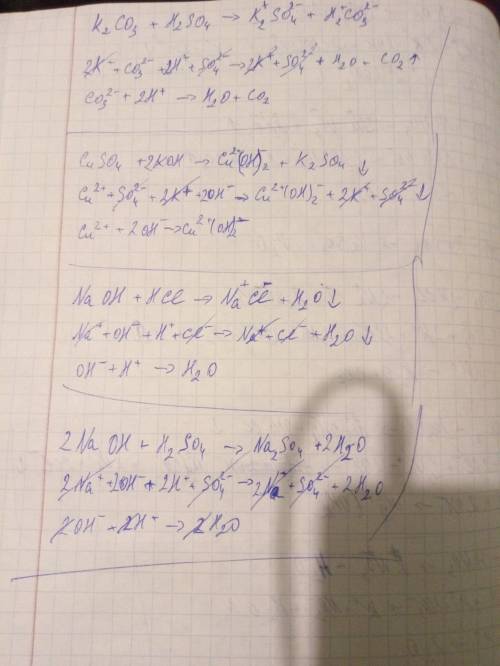 K₂CO₃ + H₂SO₄ → K₂⁺SO₄²⁻ + H₂⁺CO₃²⁻
2K⁻ + CO₃²⁻ + 2H⁺ + SO₄²⁻ → 2K⁺ + SO₄²⁻ + H₂O + CO₂↑
CO₃²⁻ + 2H⁺ → H₂O + CO₂
CuSO₄ + 2KOH → Cu²⁺(OH)₂⁻ + K₂SO₄ ↓
Cu²⁺ + SO₄²⁻ + 2K⁺ + 2OH⁻ → Cu²⁺(OH)₂⁻ + 2K⁺ + SO₄²⁻ ↓
Cu²⁺ + 2OH⁻ → Cu²⁺(OH)₂⁻
NaOH + HCl → Na⁺Cl⁻ + H₂O↓
Na⁺ + OH⁻ + H⁺ + Cl⁻ → Na⁺ + Cl⁻ + H₂O↓
OH⁻ + H⁺ → H₂O
2NaOH + H₂SO₄ → Na₂SO₄ + 2H₂O
2Na⁺ + 2OH⁻ + 2H⁺ + SO₄²⁻ → 2Na⁺ + SO₄²⁻ + 2H₂O
2OH⁻ + 2H⁺ → 2H₂O